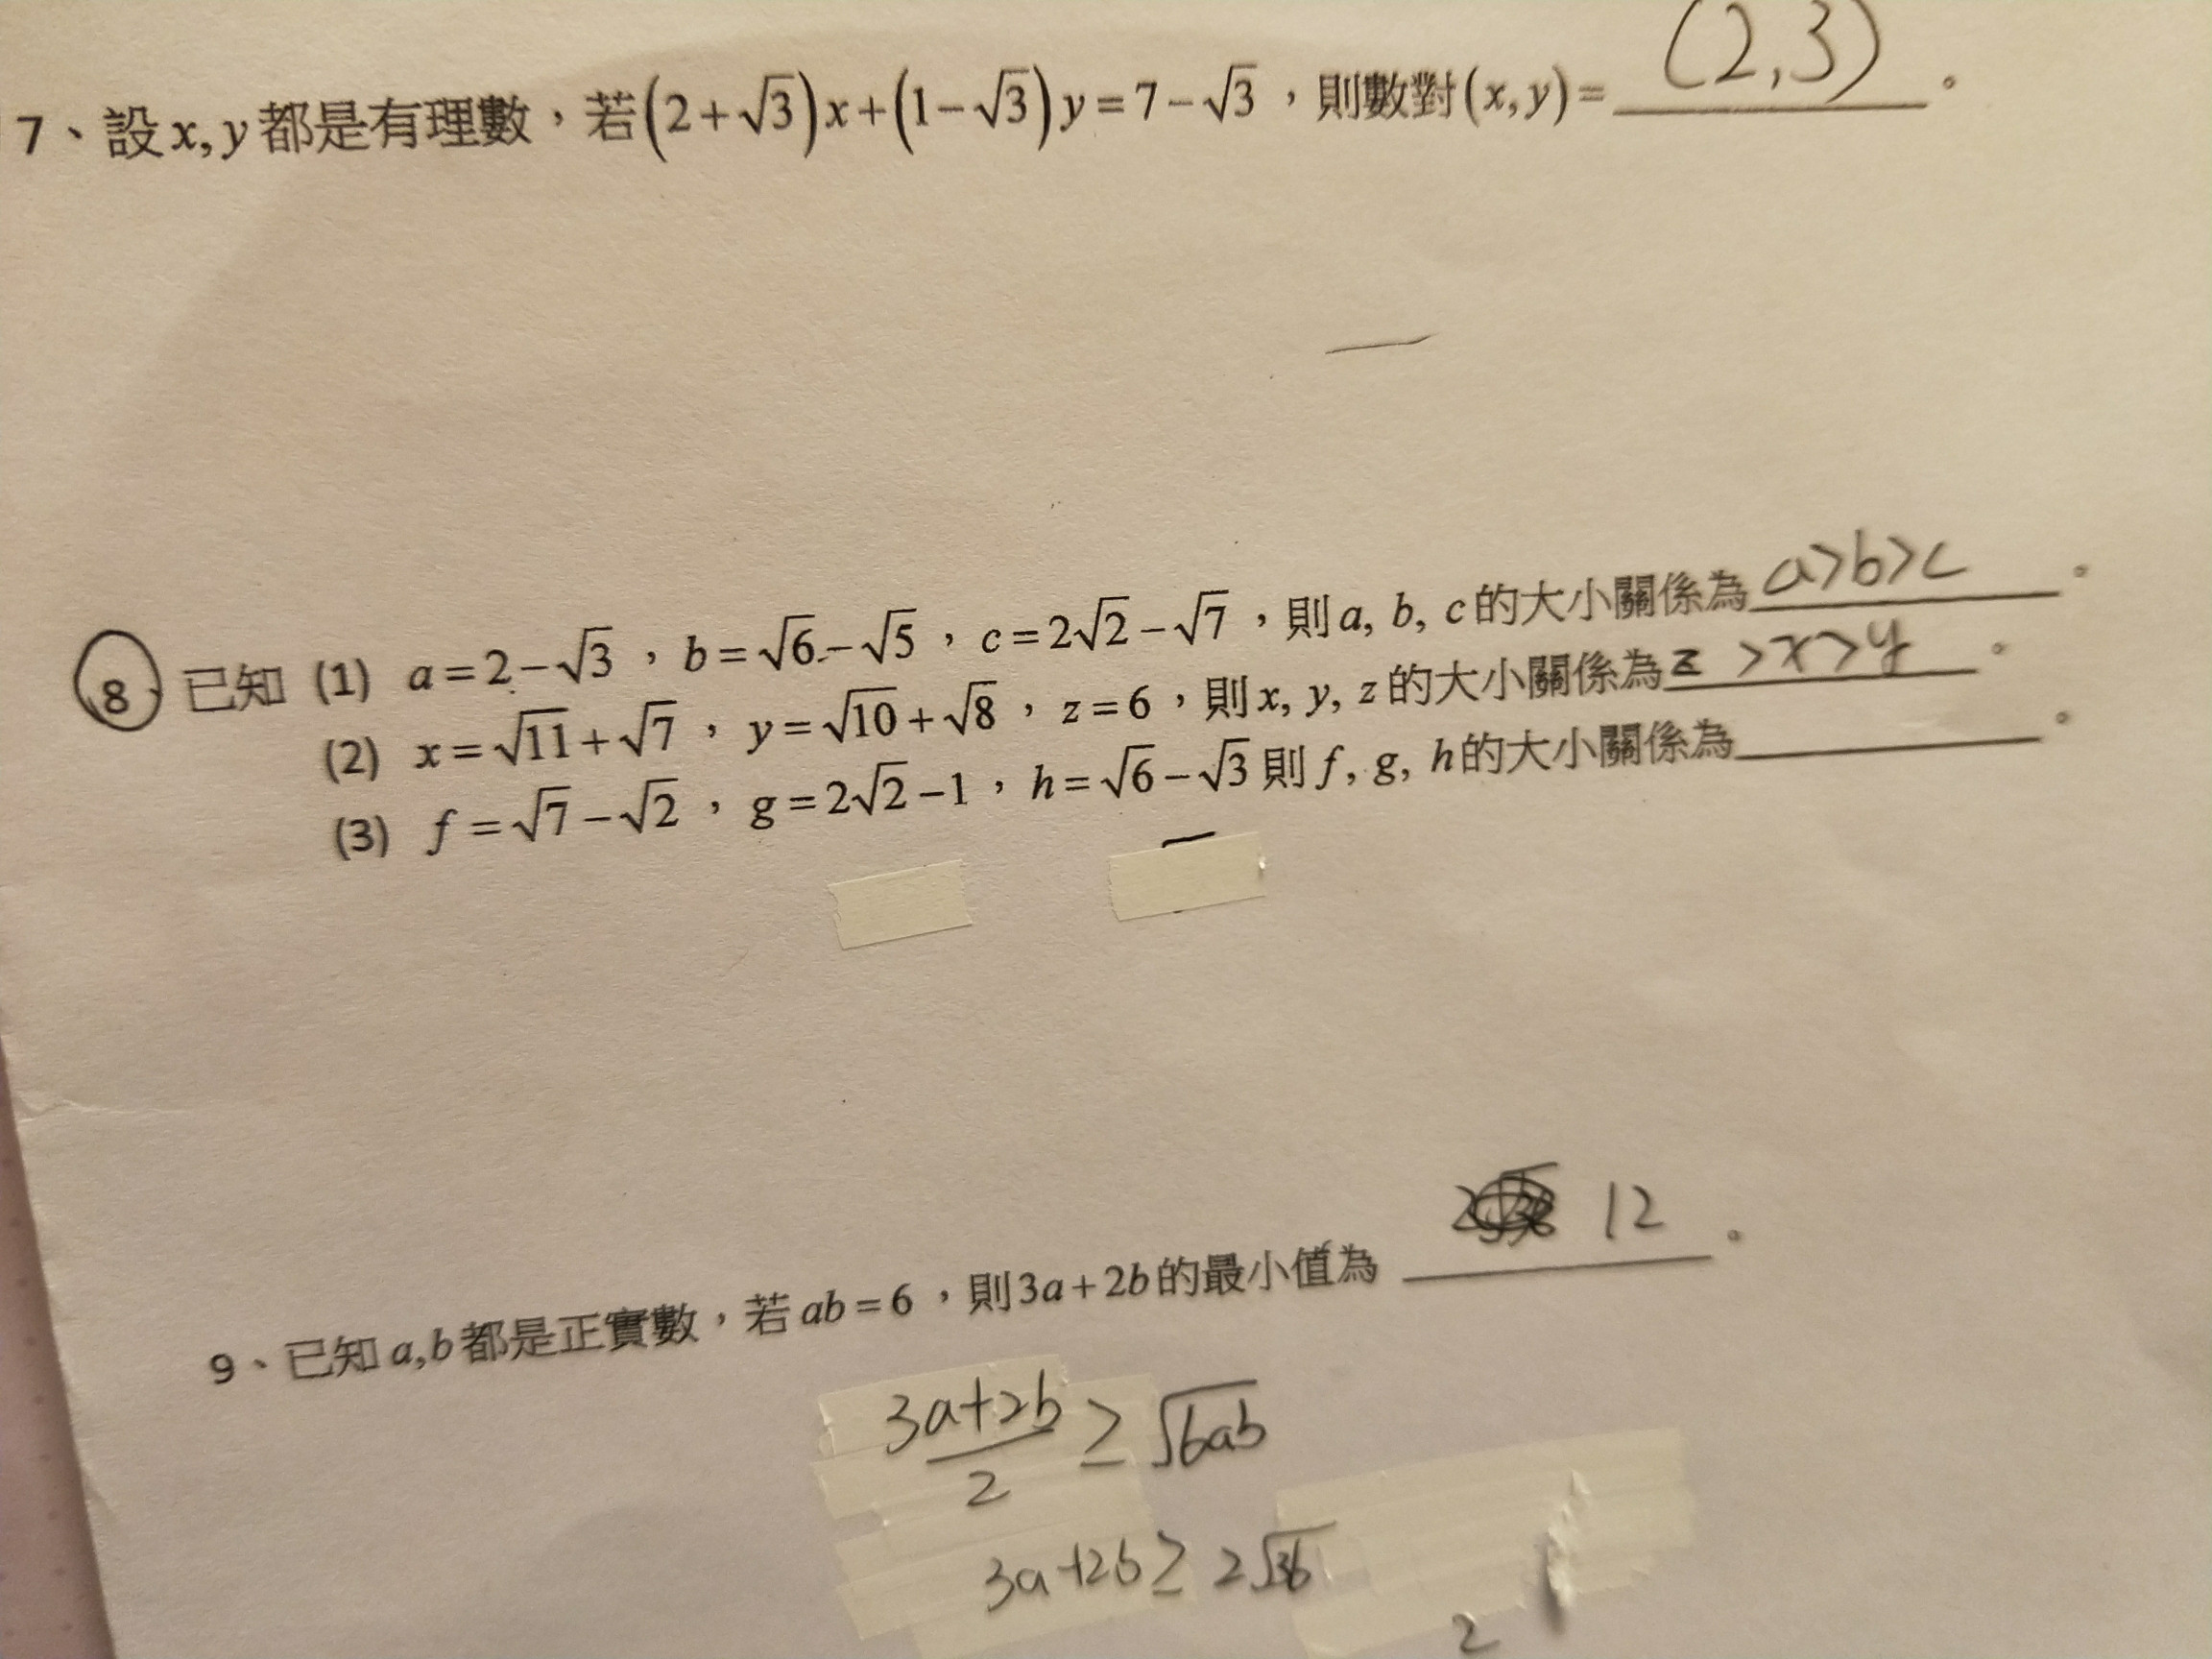 7、設x, y都是有理數，若(2+√3)x+(1-√3)y=7-√3，則數對(x, y)= (2,3)。
8 已知 (1) a=2-√3，b=√6-√5，c=2√2-√7，則a, b, c的大小關係為 a>b>c。
(2) x=√11+√7，y=√10+√8，z=6，則x, y, z的大小關係為 z >x>y。
(3) f=√7-√2，g=2√2-1，h=√6-√3則f, g, h的大小關係為______。
9、已知a,b都是正實數，若ab=6，則3a+2b的最小值為 12。
(3a+2b)/2 ≥ √6ab
3a+2b ≥ 2√36
2